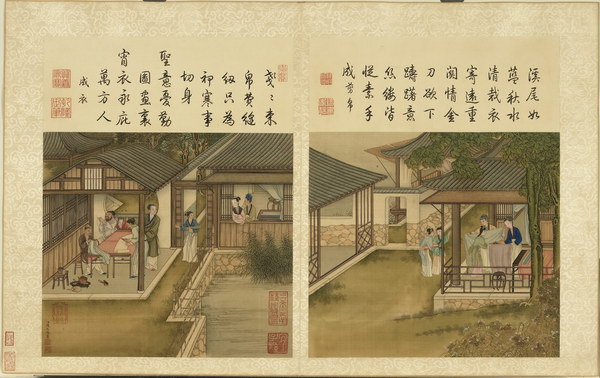 溪尾如
藍秋水
清裁衣
寄遠重
閨情金
刀欲下
躊躇意
絲縷皆
從素手
成 剪帛
戔々束
帛費縫
紉只為
祁寒事
切身
聖意憂勤
圖畫裏
宵衣永庇
萬方人
成衣